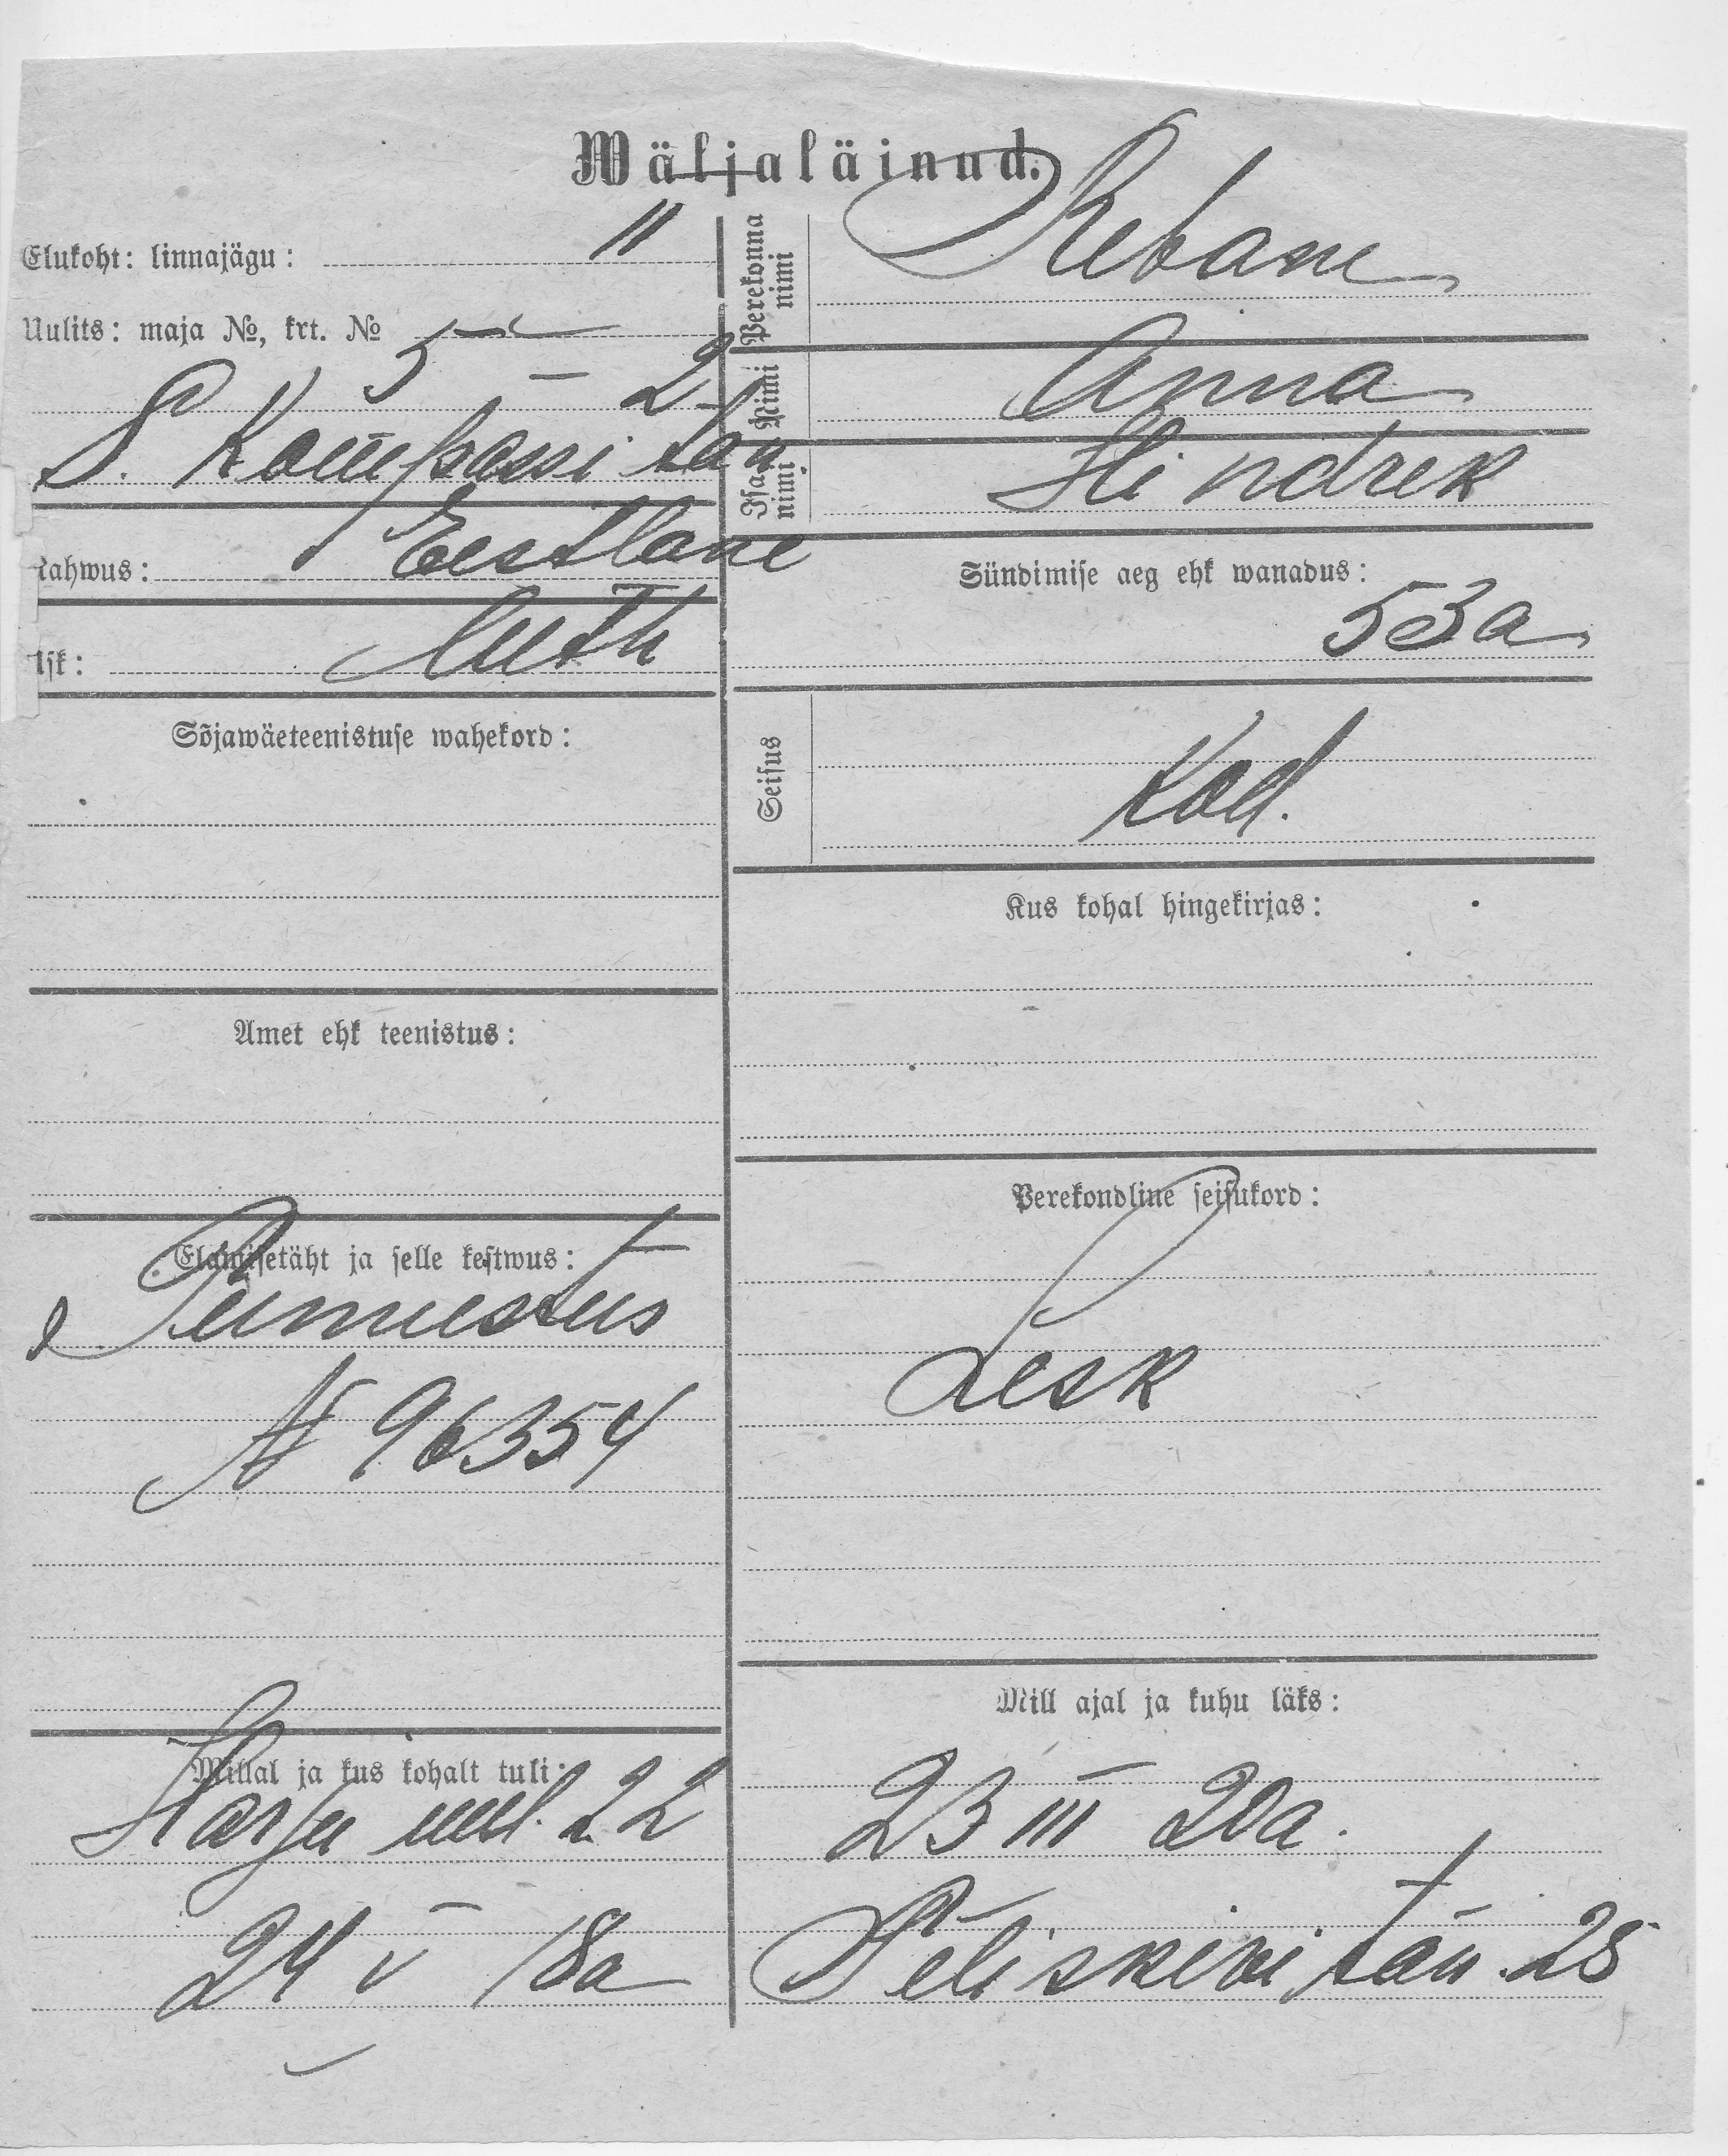 Wäljaläinud.
Elukoht: linnajägu: II
Uulits: maja №, krt. №
5 – 2
S. Kompassi tän
Rahwus: Eestlane
Usk: Luth
Sõjawäeteenistuse wahekord:
Amet ehk teenistus:
Elamisetäht ja selle kestwus:
Tunnistus
№ 96354
Millal ja kus kohalt tuli:
Harju uul. 22
24 V 18a
Perekonna nimi Rebane
Nimi Anna
Isa nimi Hindrek
Sündimise aeg ehk wanadus:
53a
Seisus Kod.
Kus kohal hingekirjas:
Perekondline seisukord:
Lesk
Mill ajal ja kuhu läks:
23 III 20a.
Teliskivi tän. 28